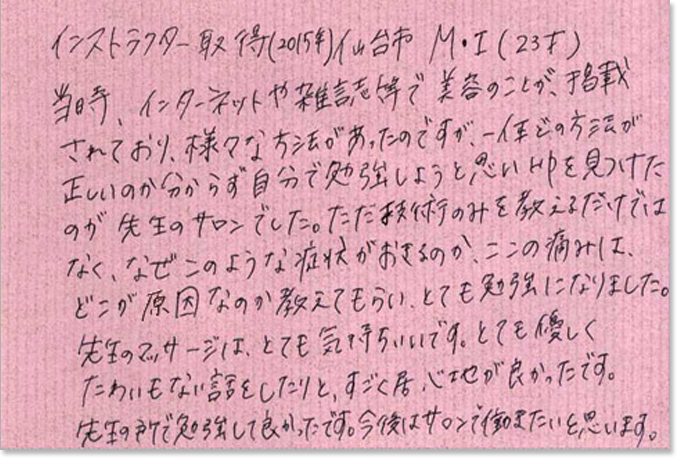 インストラクター取得(2015年)仙台市 M・I(23才)
当時、インターネットや雑誌等で美容のことが、掲載
されており、様々な方法があったのですが、一体どの方法が
正しいのか分からず自分で勉強しようと思いHPを見つけた
のが先生のサロンでした。ただ技術のみを教えるだけでは
なく、なぜこのような症状がおきるのか、ここの痛みは、
どこが原因なのか教えてもらい、とても勉強になりました。
先生のマッサージは、とても気持ちいいです。とても優しく
たわいもない話をしたりと、すごく居心地が良かったです。
先生の所で勉強して良かったです。今後はサロンで働きたいと思います。